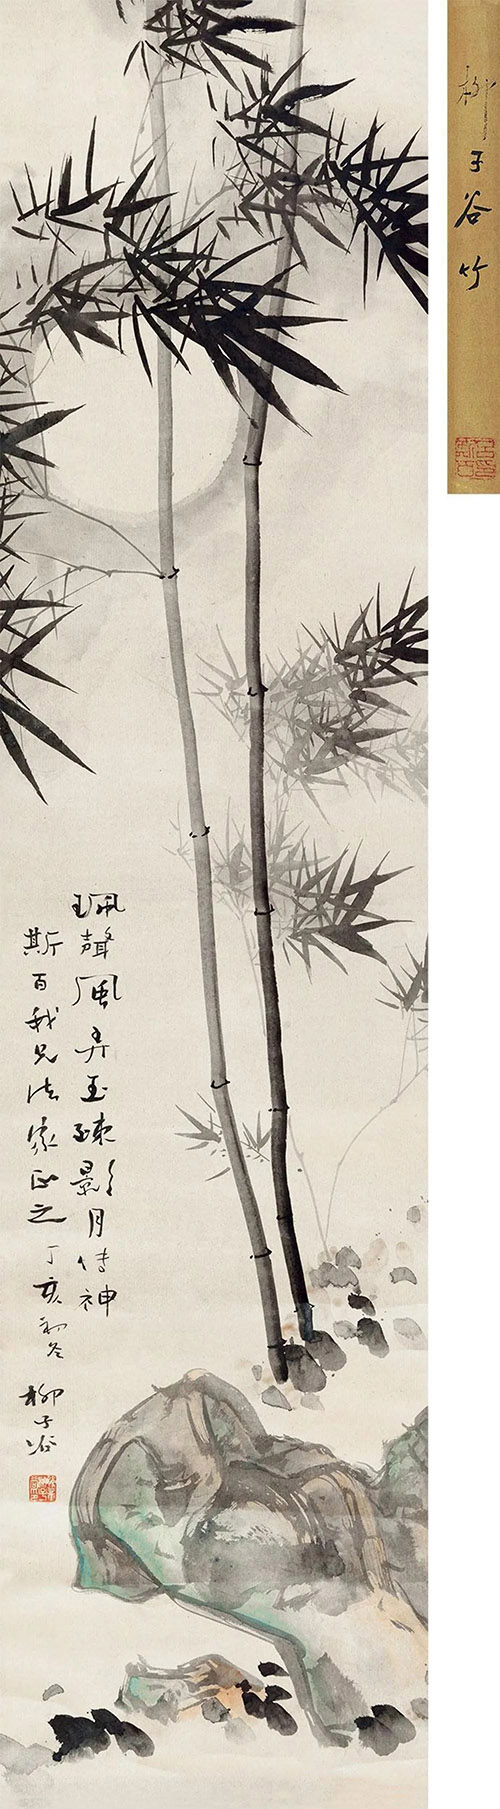 珮聲風弄玉疎影月傳神
斯百我兄法家正之 丁亥初冬 柳子谷
柳子谷竹